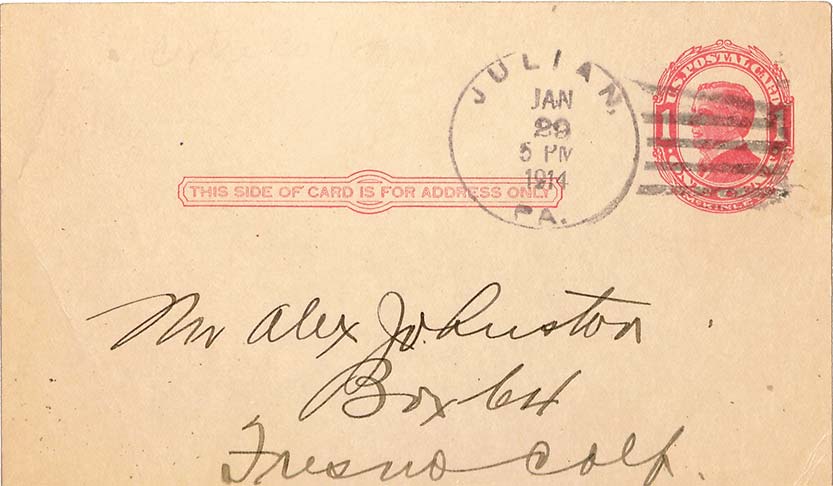 JULIAN,
JAN
29
5 PM
1914
PA.
U.S. POSTAL CARD
1 1
MCKINLEY
THIS SIDE OF CARD IS FOR ADDRESS ONLY
Mr Alex Johnston
Box 64
Fresno Calf.